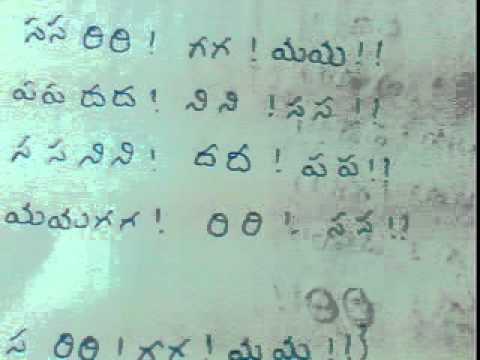 సస రిరి ! గగ ! మమ !!
పప దద ! నిని ! సస !!
సస నిని ! దద ! పప !!
మమగగ ! రిరి ! సస !!
స రిరి ! గగ ! మమ !!